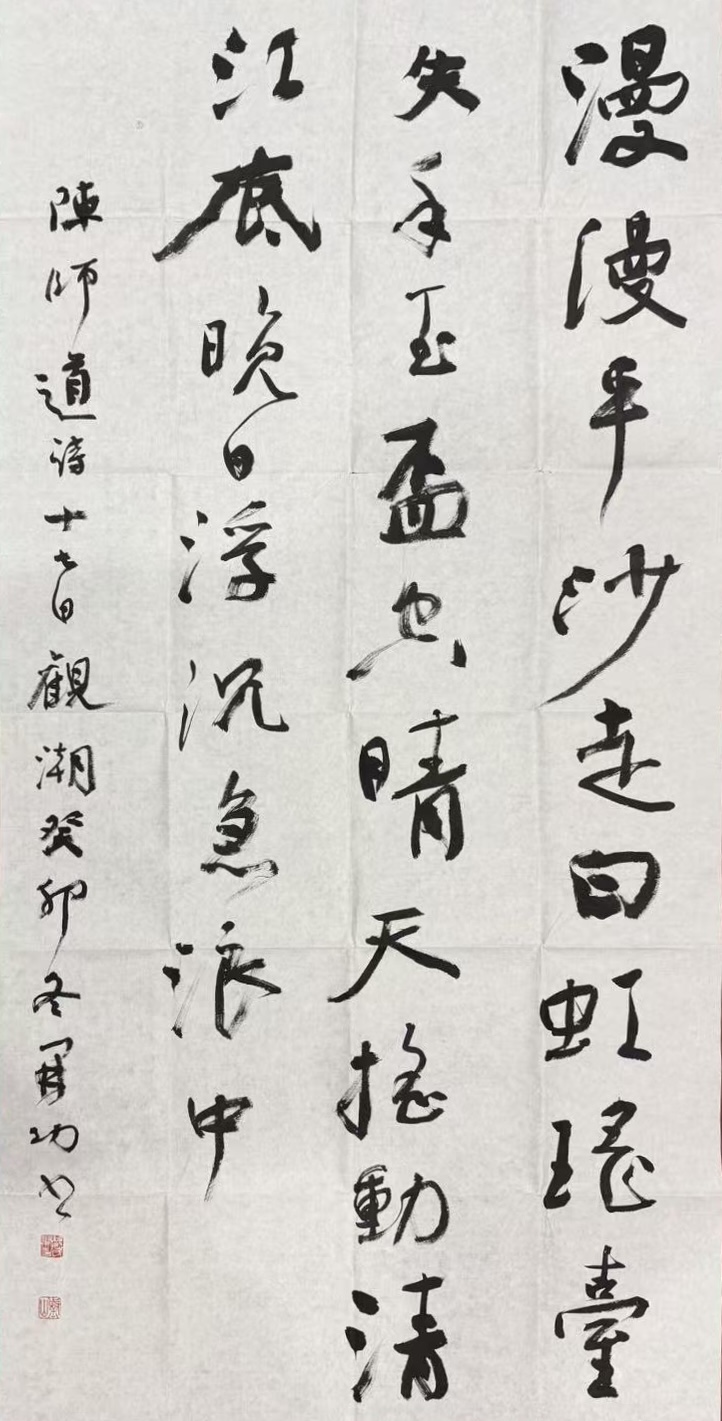 漫漫平沙走白虹瑤臺
失手玉盃空晴天搖動清
江底晚日浮沉急浪中
陳師道詩十七日觀潮癸卯冬 功书